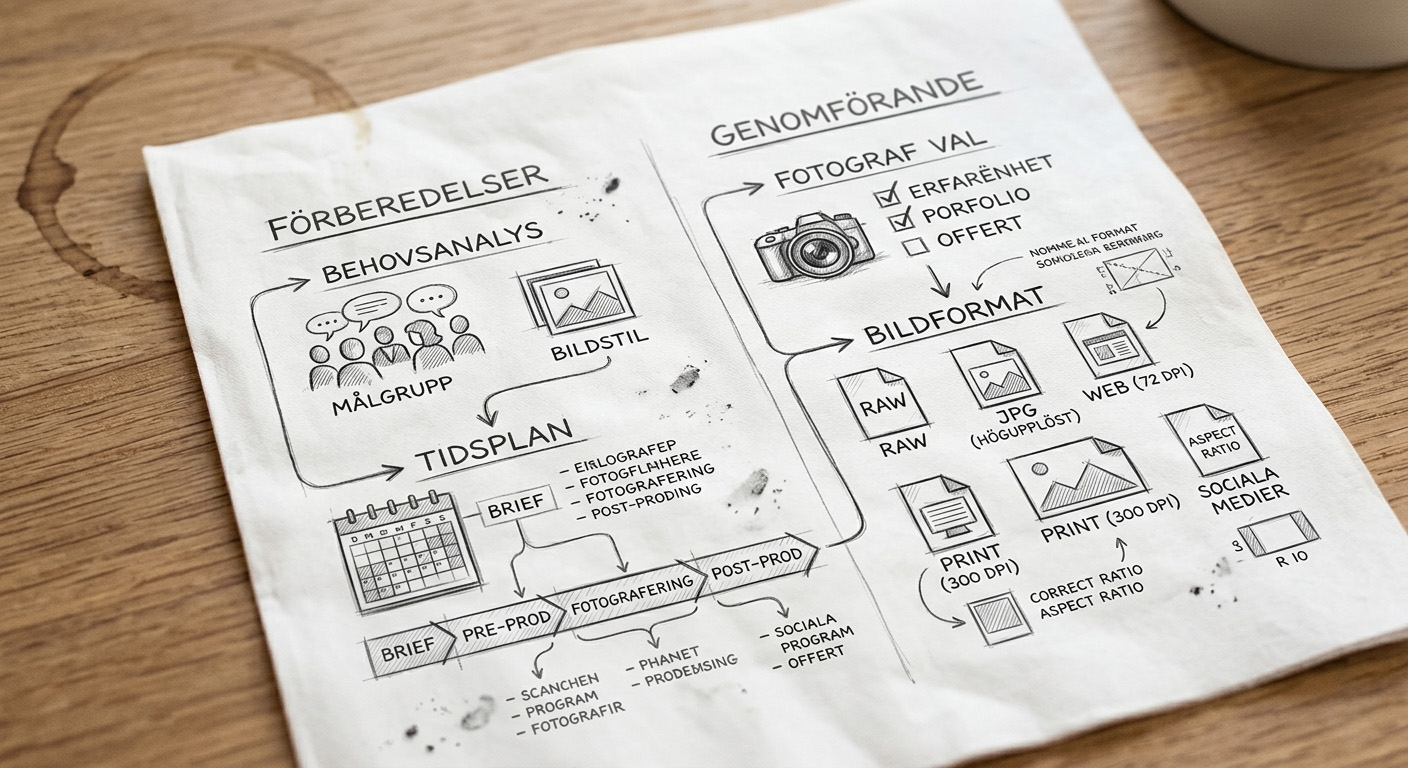 FÖRBEREDELSER
BEHOVSANALYS
MÅLGRUPP
BILDSTIL
TIDSPLAN
BRIEF
- FOTOGRAFERING
- POST-PRODING
D M M F S S
BRIEF
PRE-PROD
FOTOGRAFERING
POST-PROD
- SCANCHEN
PROGRAM
- FOTOGRAFIR
- PHANET
- SOCIALA
PROGRAM
- OFFERT
GENOMFÖRANDE
FOTOGRAF VAL
ERFARËNHET
PORFOLIO
OFFERT
FORMAT
BILDFORMAT
RAW
RAW
JPG
(HÖGUPPLÖST)
WEB (72 DPI)
PRINT
(300 DPI)
PRINT (300 DPI)
ASPECT
RATIO
SOCIALA
MEDIER
R IO
CORRECT RATIO
ASPECT RATIO